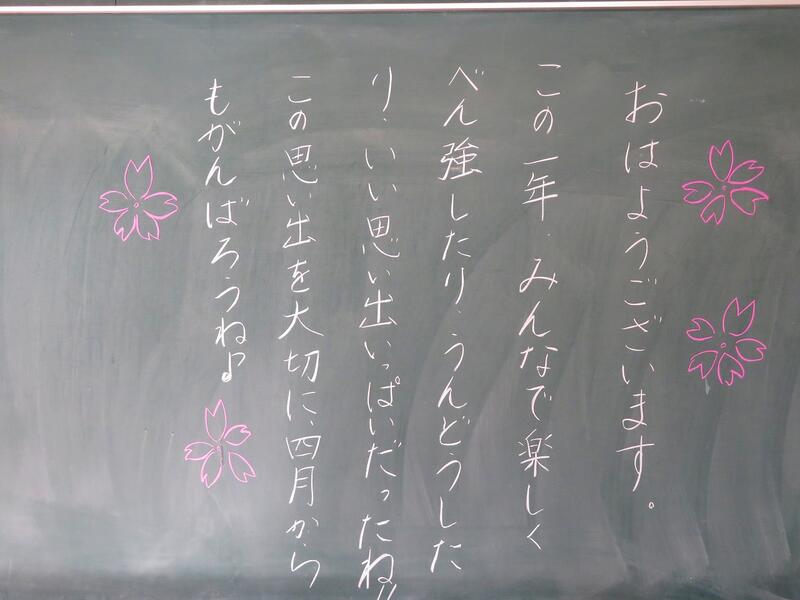 おはようございます。
この一年、みんなで楽しく
べん強したり、うんどうした
り、いい思い出いっぱいだったね!!
この思い出を大切に、四月から
もがんばろうね♪。